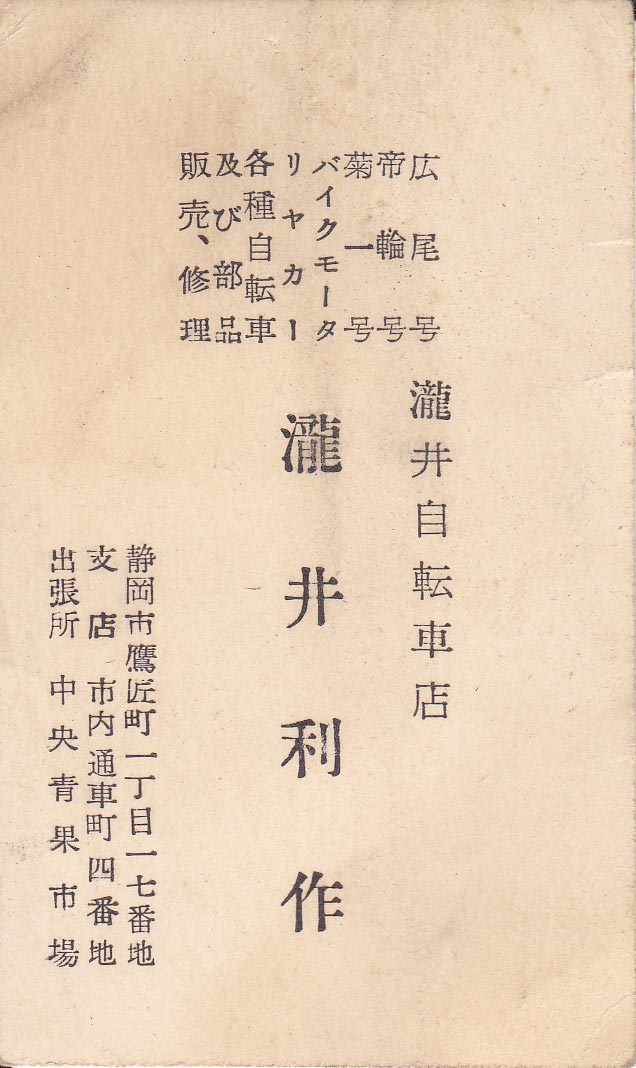 広尾号
帝輪号
菊一号
バイクモータ
リヤカー
各種自転車
及び部品
販売、修理
瀧井自転車店
瀧井利作
静岡市鷹匠町一丁目一七番地
支店 市内通車町四番地
出張所 中央青果市場